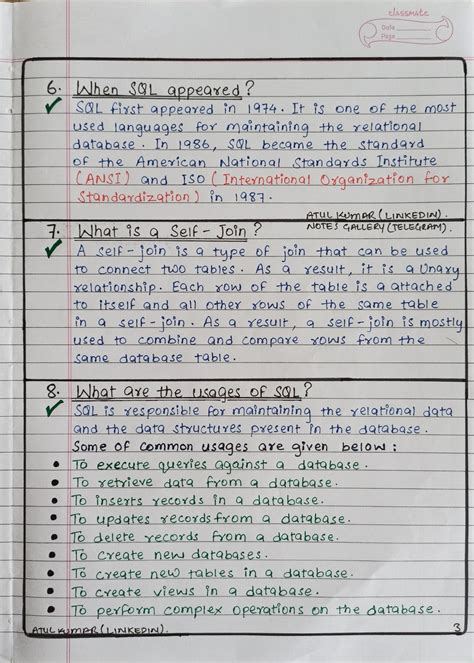 classmate
Date
Page
6. When SQL appeared?
SQL first appeared in 1974. It is one of the most
used languages for maintaining the relational
database. In 1986, SQL became the standard
of the American National Standards Institute
(ANSI) and ISO (International Organization for
Standardization) in 1987.
ATUL KUMAR (LINKEDIN).
NOTES GALLERY (TELEGRAM).
7. What is a Self-Join?
A self-join is a type of join that can be used
to connect two tables. As a result, it is a Unary
relationship. Each row of the table is a attached
to itself and all other rows of the same table
in a self-join. As a result, a self-join is mostly
used to combine and compare rows from the
same database table.
8. What are the usages of SQL?
SQL is responsible for maintaining the relational data
and the data structures present in the database.
Some of common usages are given below:
• To execute queries against a database.
• To retrieve data from a database.
• To inserts records in a database.
• To updates records from a database.
• To delete records from a database.
• To create new databases.
• To create new tables in a database.
• To create views in a database.
• To perform complex operations on the database.
ATUL KUMAR (LINKEDIN).
3